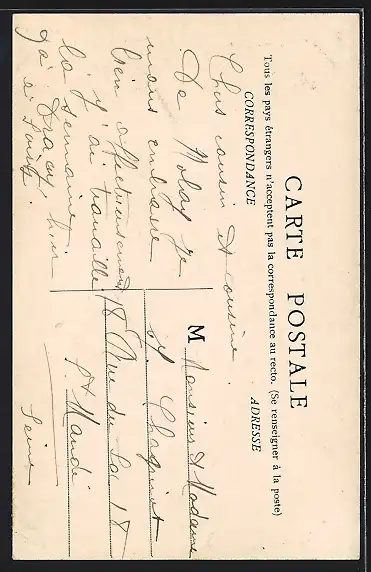 CARTE POSTALE
Tous les pays étrangers n'acceptent pas la correspondance au recto. (Se renseigner à la poste)
CORRESPONDANCE
ADRESSE
Chers cousin & cousine.
De Nolay je
vous embrasse
bien affectueusement
J'ai travaillé
la semaine
à
Monsieur & Madame
18 Rue du Lac 18
St Mandé
Seine